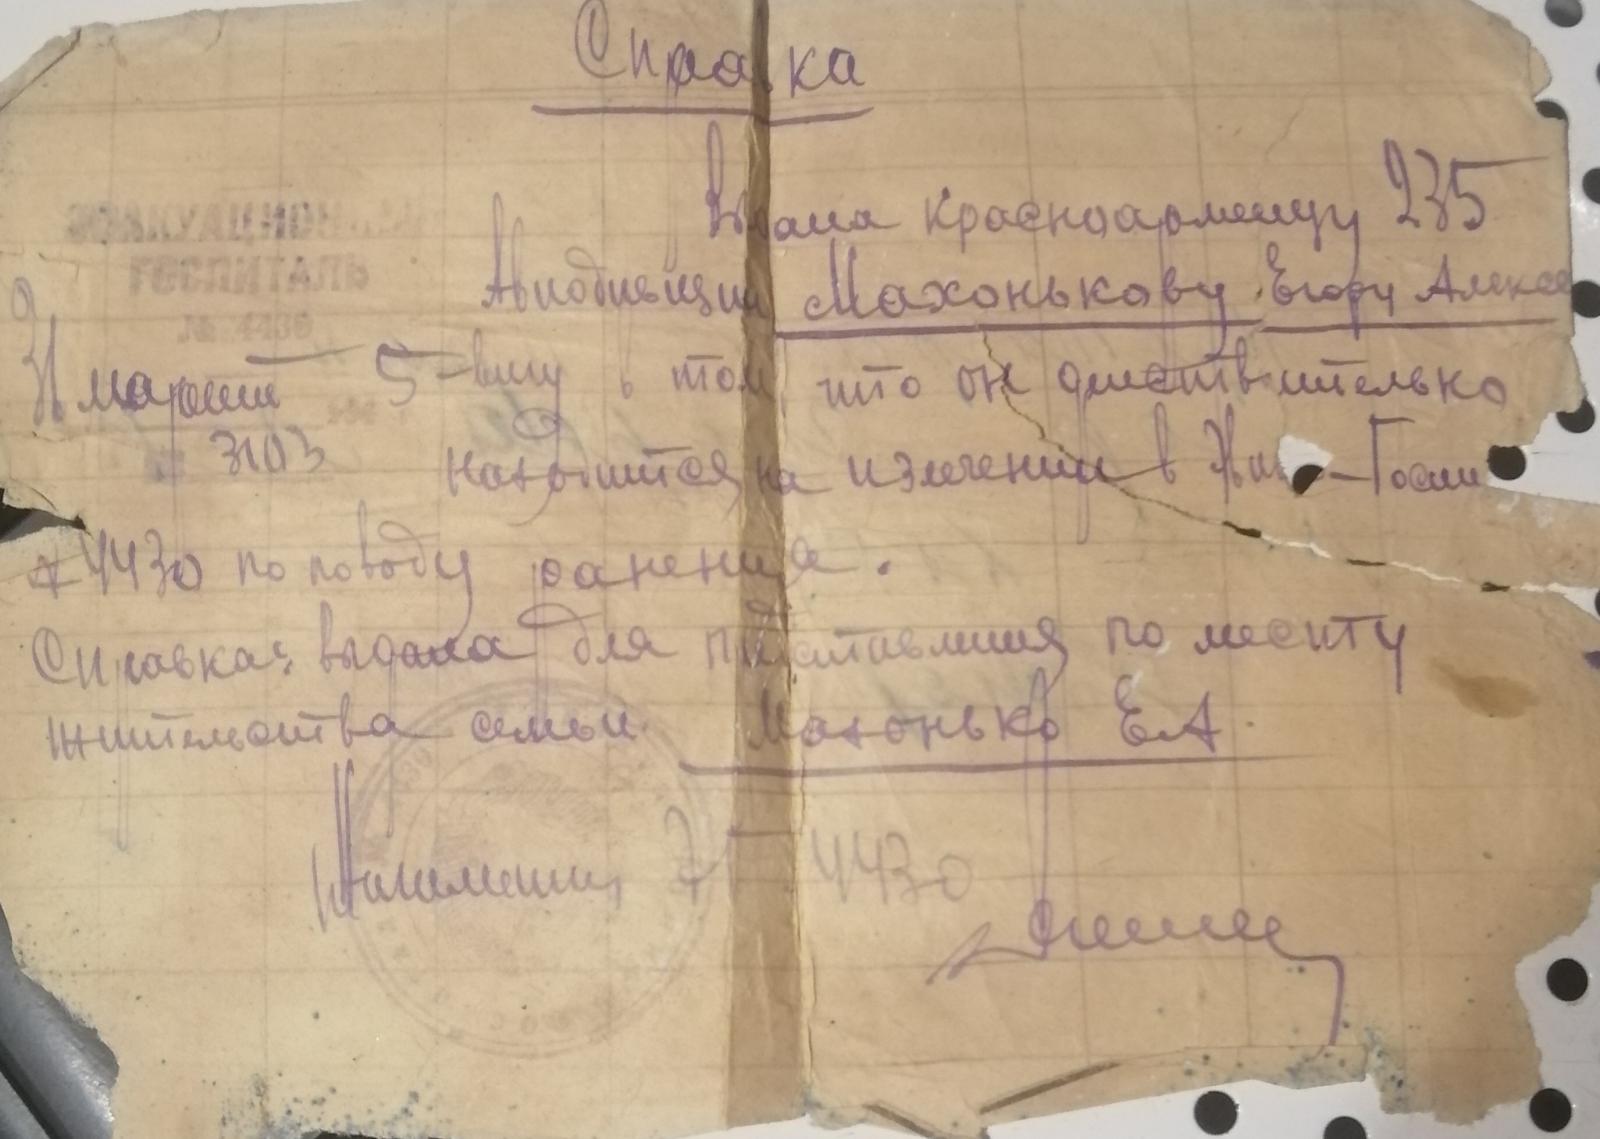 Справка
Выдана красноармейцу 235
ЭВАКУАЦИОННЫЙ
ГОСПИТАЛЬ
№ 4430
Махонькову Егору Алексе
31 марта 5
3103
-вичу в том, что он действительно
находится на излечении в Госпи
№ 4430 по поводу ранения.
Справка выдана для по месту
жительства семьи Махонько Е.А.
4430